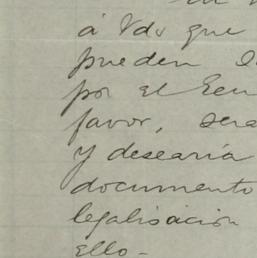 á Vds que
pueden
por el
favor, sera
y desearía
documento
legalisación
ello -